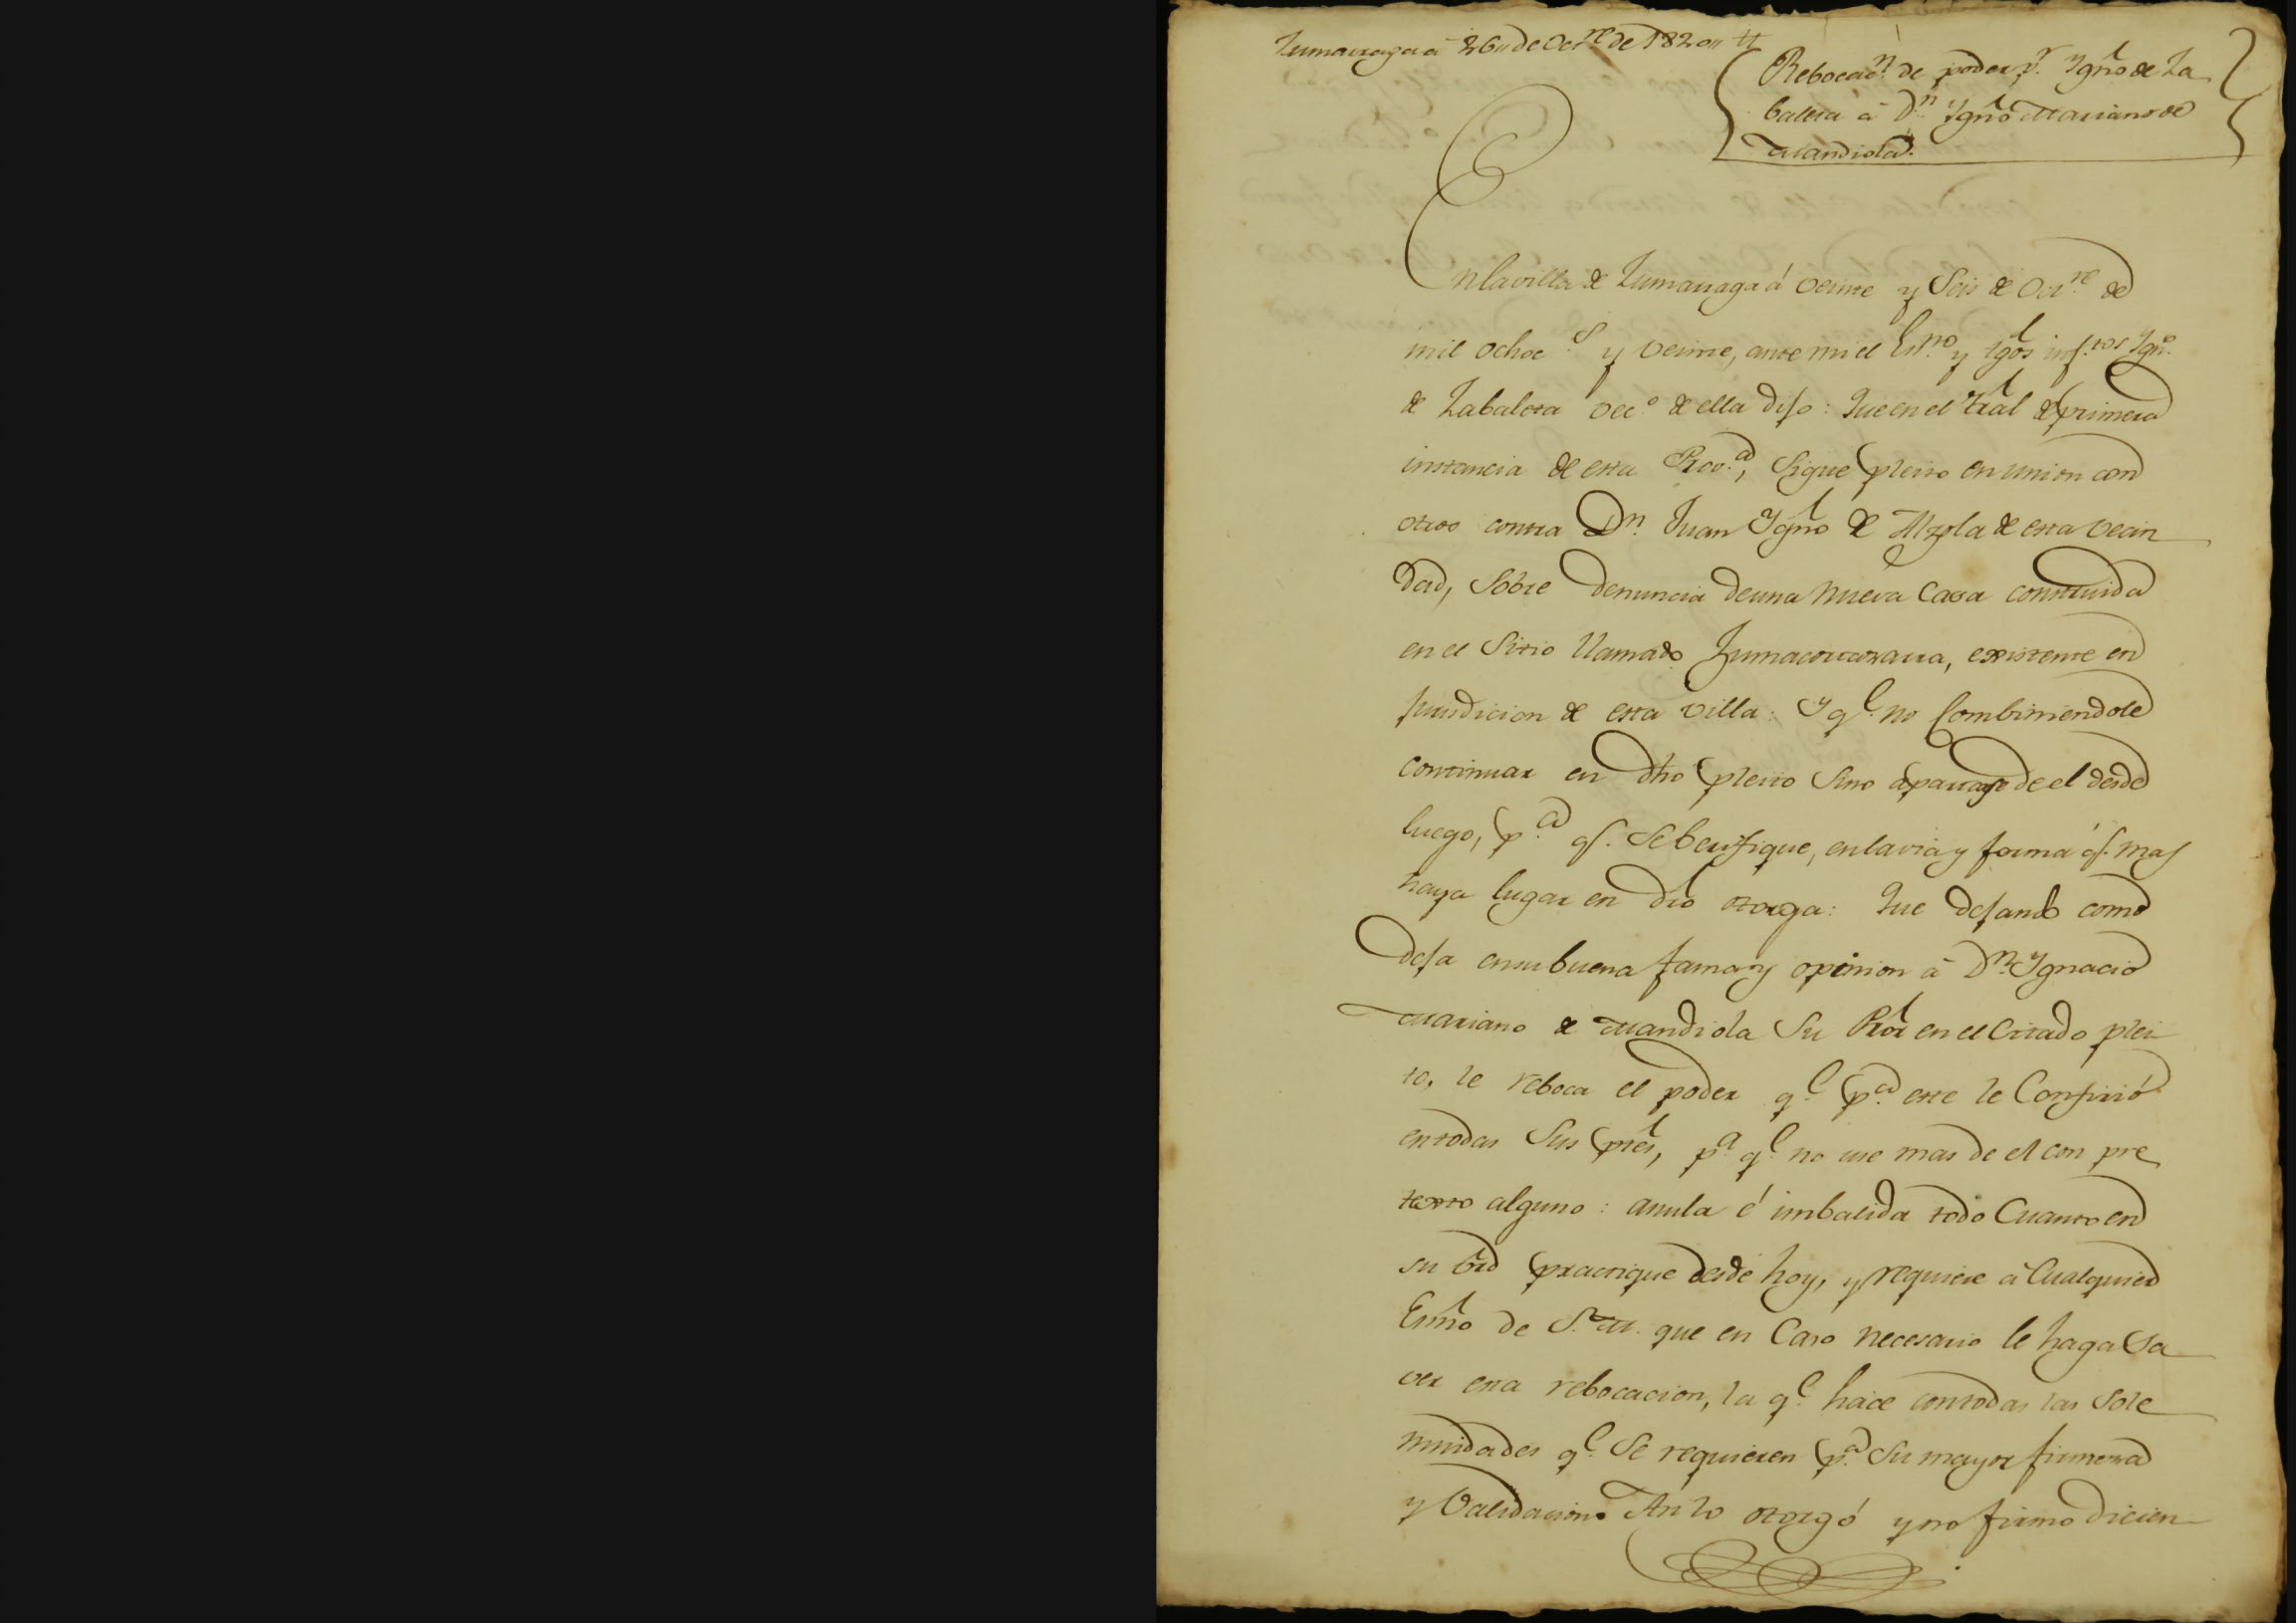 Zumarraga á 26,, de Oct.re de 1820,,
Rebocac.n de poder p.r Ygn.o de Za
baleta á D.n Ygn.o Mariano de
Mandiola.
En la villa de Zumarraga á veinte y Seis de Oct.re de
mil ochoc.s y veinte, ante mi el Es.no y tgos inf.tos Ygn.o
de Zabaleta vec.o de ella dijo: Que en el Tral de primera
instancia de esta Prov.a, Sigue pleito en union con
otros contra D.n Juan Ygno de Alzola de esta vecin
dad, Sobre denuncia de una nueva Casa construida
en el Sitio llamado, existente en
jurisdicion de esta villa: Y q.e no Combiniendole
continuar en dho pleito Sino apartarse de el desde
luego, p.a q.e Se berifique, en la via y forma q.e mas
haya lugar en dro otorga: Que dejando como
deja en su buena fama y opinion á D.n Ygnacio
Mariano de Mandiola Su Pror en el Citado plei
to, le reboca el poder q.e p.a este le Confirió
en todas Sus ptes, p.a q.e no use mas de el con pre
texto alguno: anula é imbalida todo Cuanto en
su brd practique desde hoy, y requiere á Cualquier
Esno de S. M. que en Caso necesario le haga Sa
ver esta rebocacion, la q.e hace con todas las Sole
mnidades q.e Se requieren p.a Su mayor firmeza
y Validacion. Asi lo otorgó y no firmo dicien